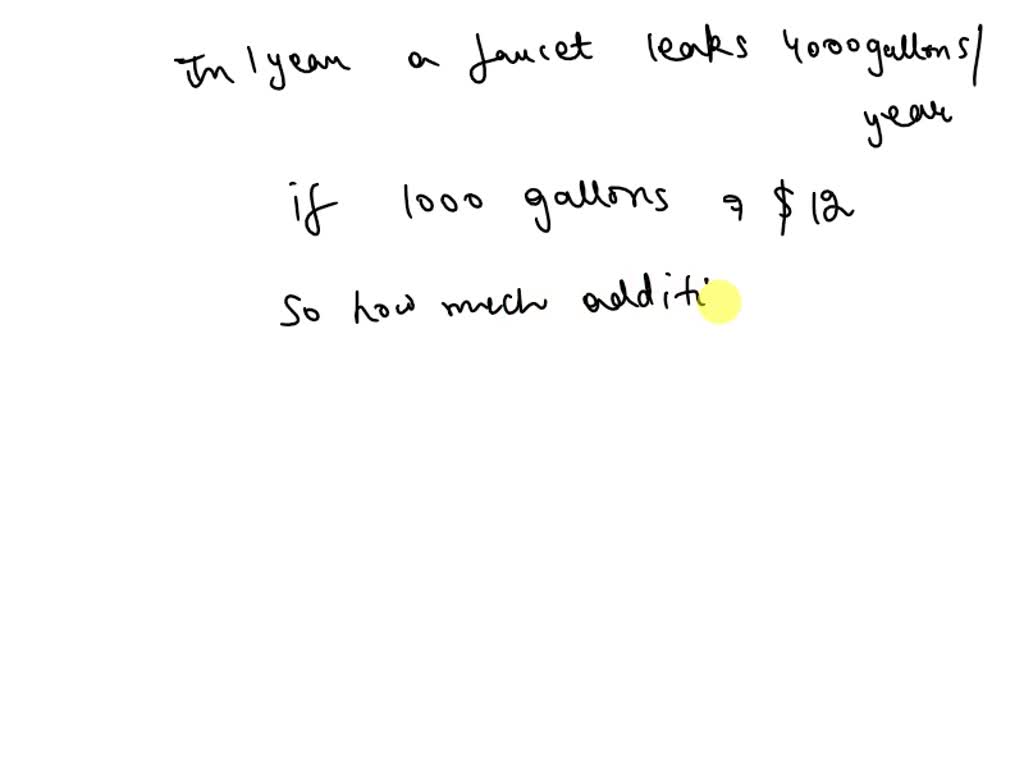 In 1 year a faucet leaks 4000 gallons/
year
if 1000 gallons → $12
so how much additi